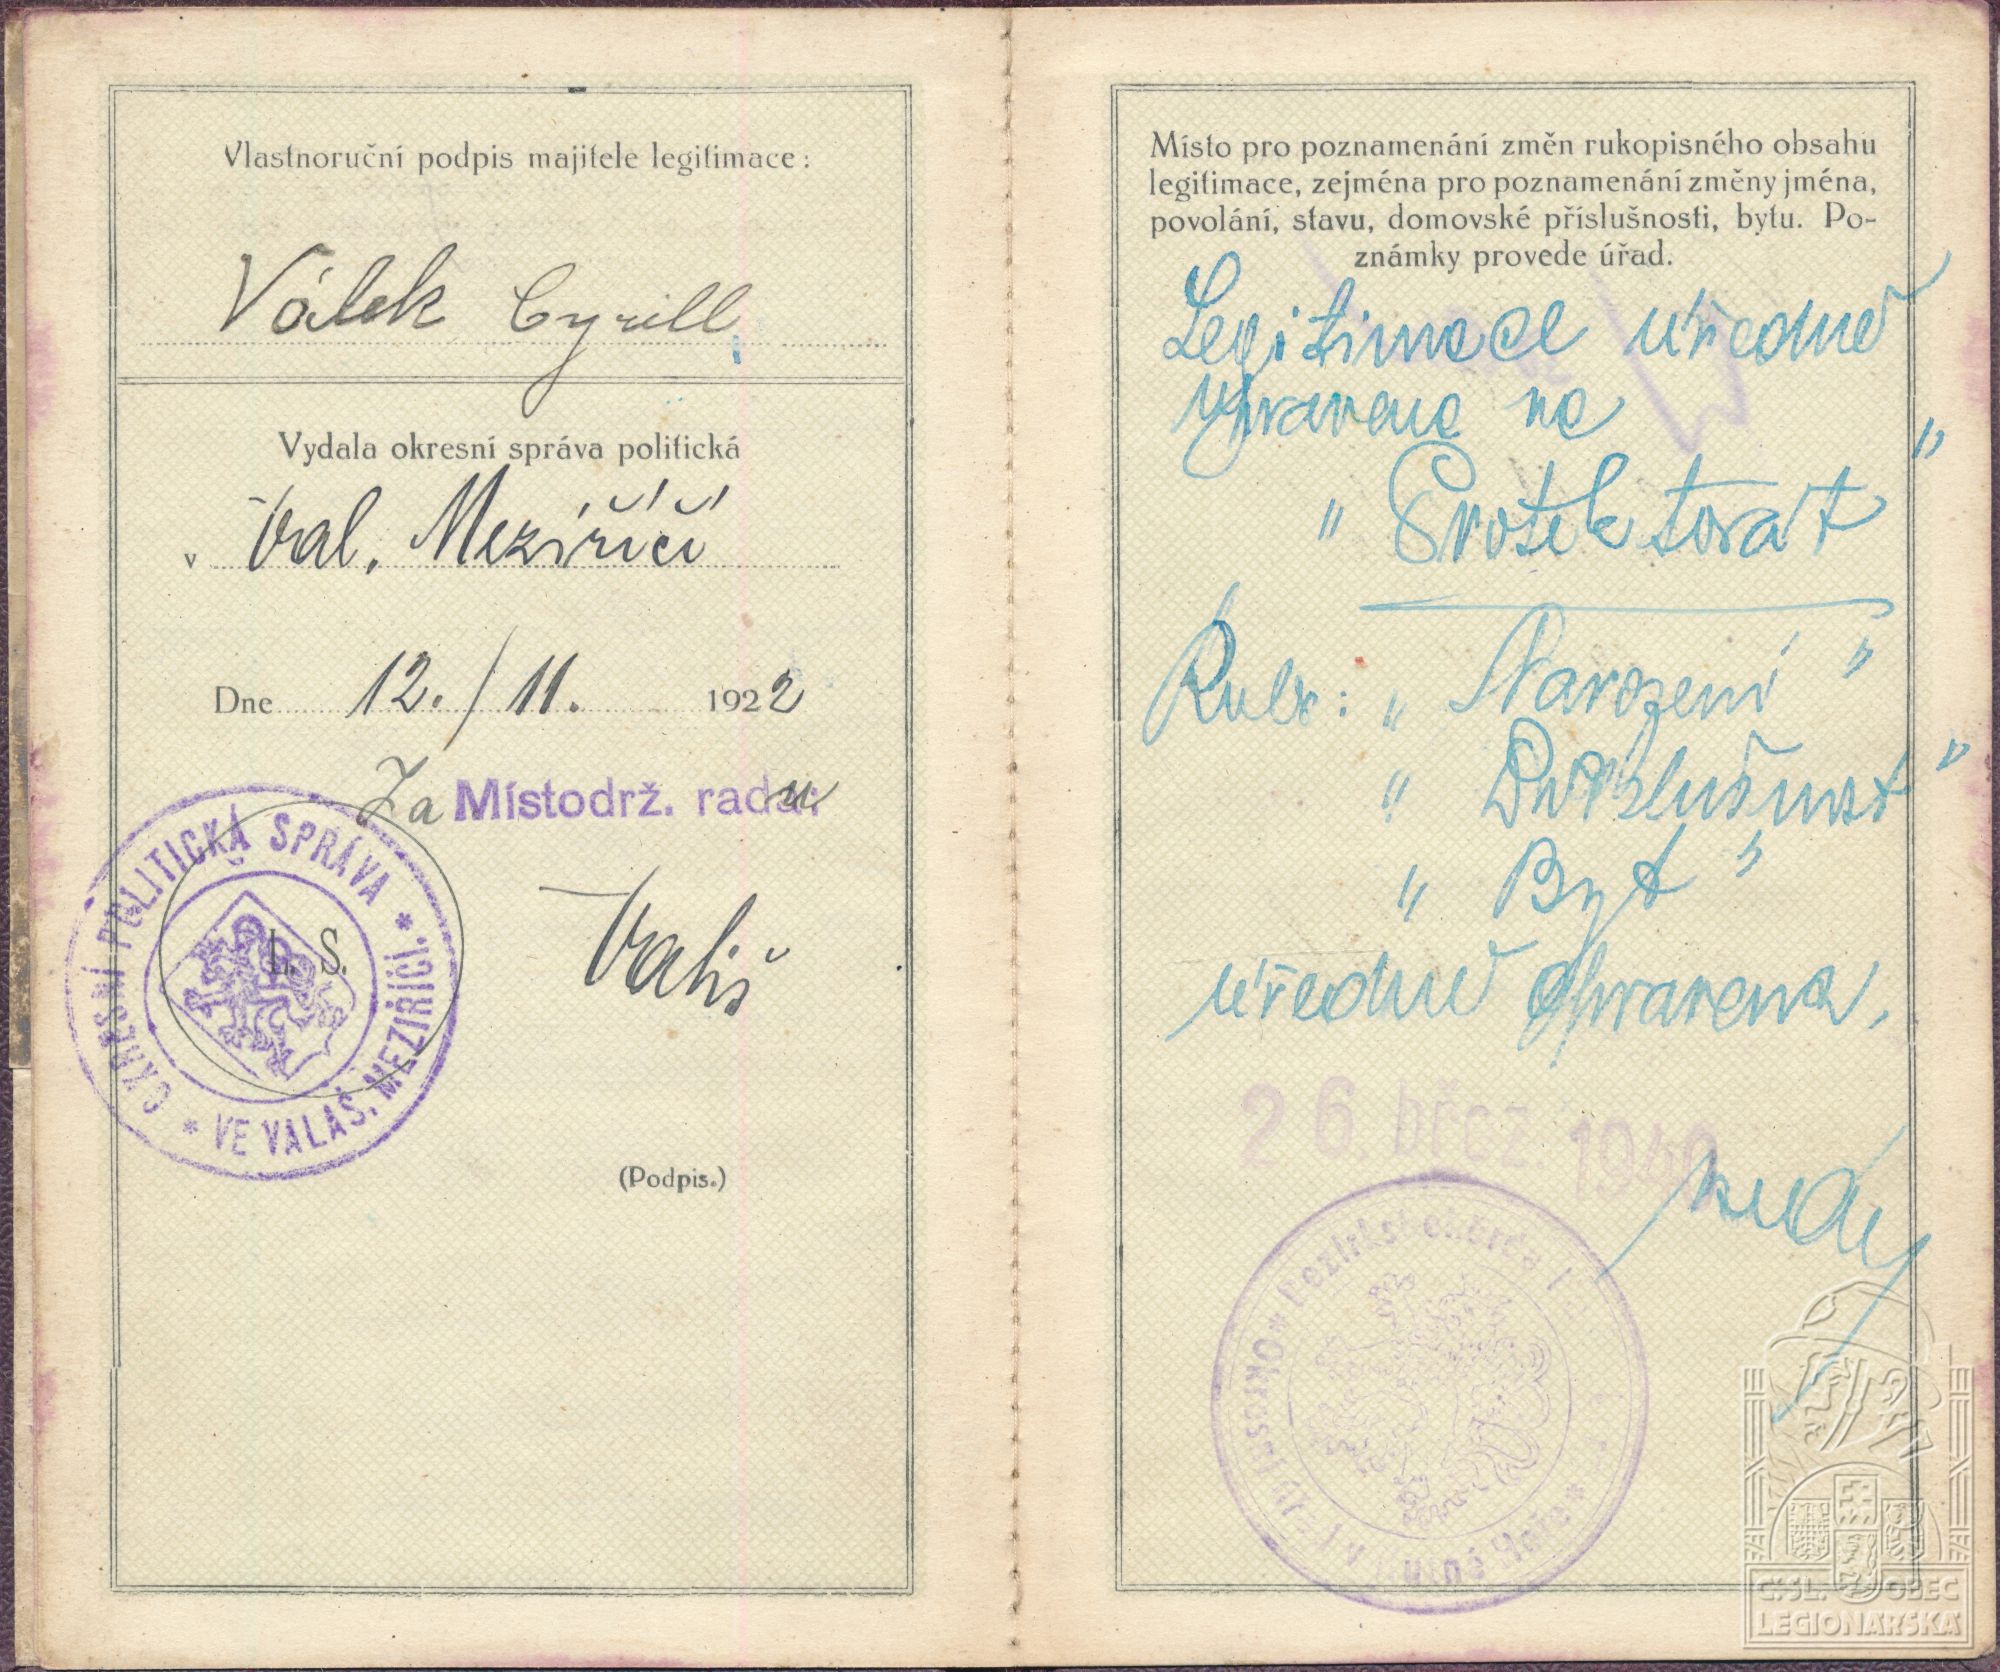 Vlastnoruční podpis majitele legitimace:
Válek Cyrill
Vydala okresní správa politická
v Val. Meziříčí
Dne 12./11. 1922
Za Místodrž. radu:
Vališ
L. S.
OKRESNÍ POLITICKÁ SPRÁVA * VE VALAŠ. MEZIŘÍČÍ. *
(Podpis.)
Místo pro poznamenání změn rukopisného obsahu
legitimace, zejména pro poznamenání změny jména,
povolání, stavu, domovské příslušnosti, bytu. Po-
známky provede úřad.
Legitimace úředně
upravena na
„Protektorat"
Rubr: „Narození"
„Příslušnost"
„Byt"
úředně opravena.
26. břez. 1940
Okresní úřad v Kutné Hoře *
Č. SL. OBEC
LEGIONÁŘSKÁ